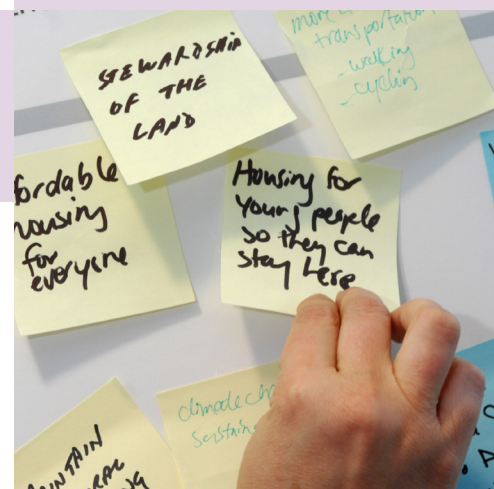 STEWARDSHIP
OF THE
LAND
transportation
- walking
- cycling
fordable
housing
for
everyone
Housing for
young people
so they can
stay here
climate ch
sustain
NTAIN
RAL